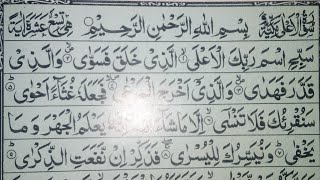 سُوْرَةُ الْاَعْلٰى مَكِّيَّةٌ بِسْمِ اللهِ الرَّحْمٰنِ الرَّحِيْمِ وَهِيَ تِسْعَ عَشْرَةَ اٰيَةً
سَبِّحِ اسْمَ رَبِّكَ الْاَعْلَى ۙ الَّذِيْ خَلَقَ فَسَوّٰى ۙ وَالَّذِيْ
قَدَّرَ فَهَدٰى ۙ وَالَّذِيْ اَخْرَجَ الْمَرْعٰى ۙ فَجَعَلَهٗ غُثَآءً اَحْوٰى ؕ
سَنُقْرِئُكَ فَلَا تَنْسٰٓى ۙ اِلَّا مَا شَآءَ اللهُ ؕ اِنَّهٗ يَعْلَمُ الْجَهْرَ وَمَا
يَخْفٰى ؕ وَنُيَسِّرُكَ لِلْيُسْرٰى ۚ فَذَكِّرْ اِنْ نَّفَعَتِ الذِّكْرٰى ؕ